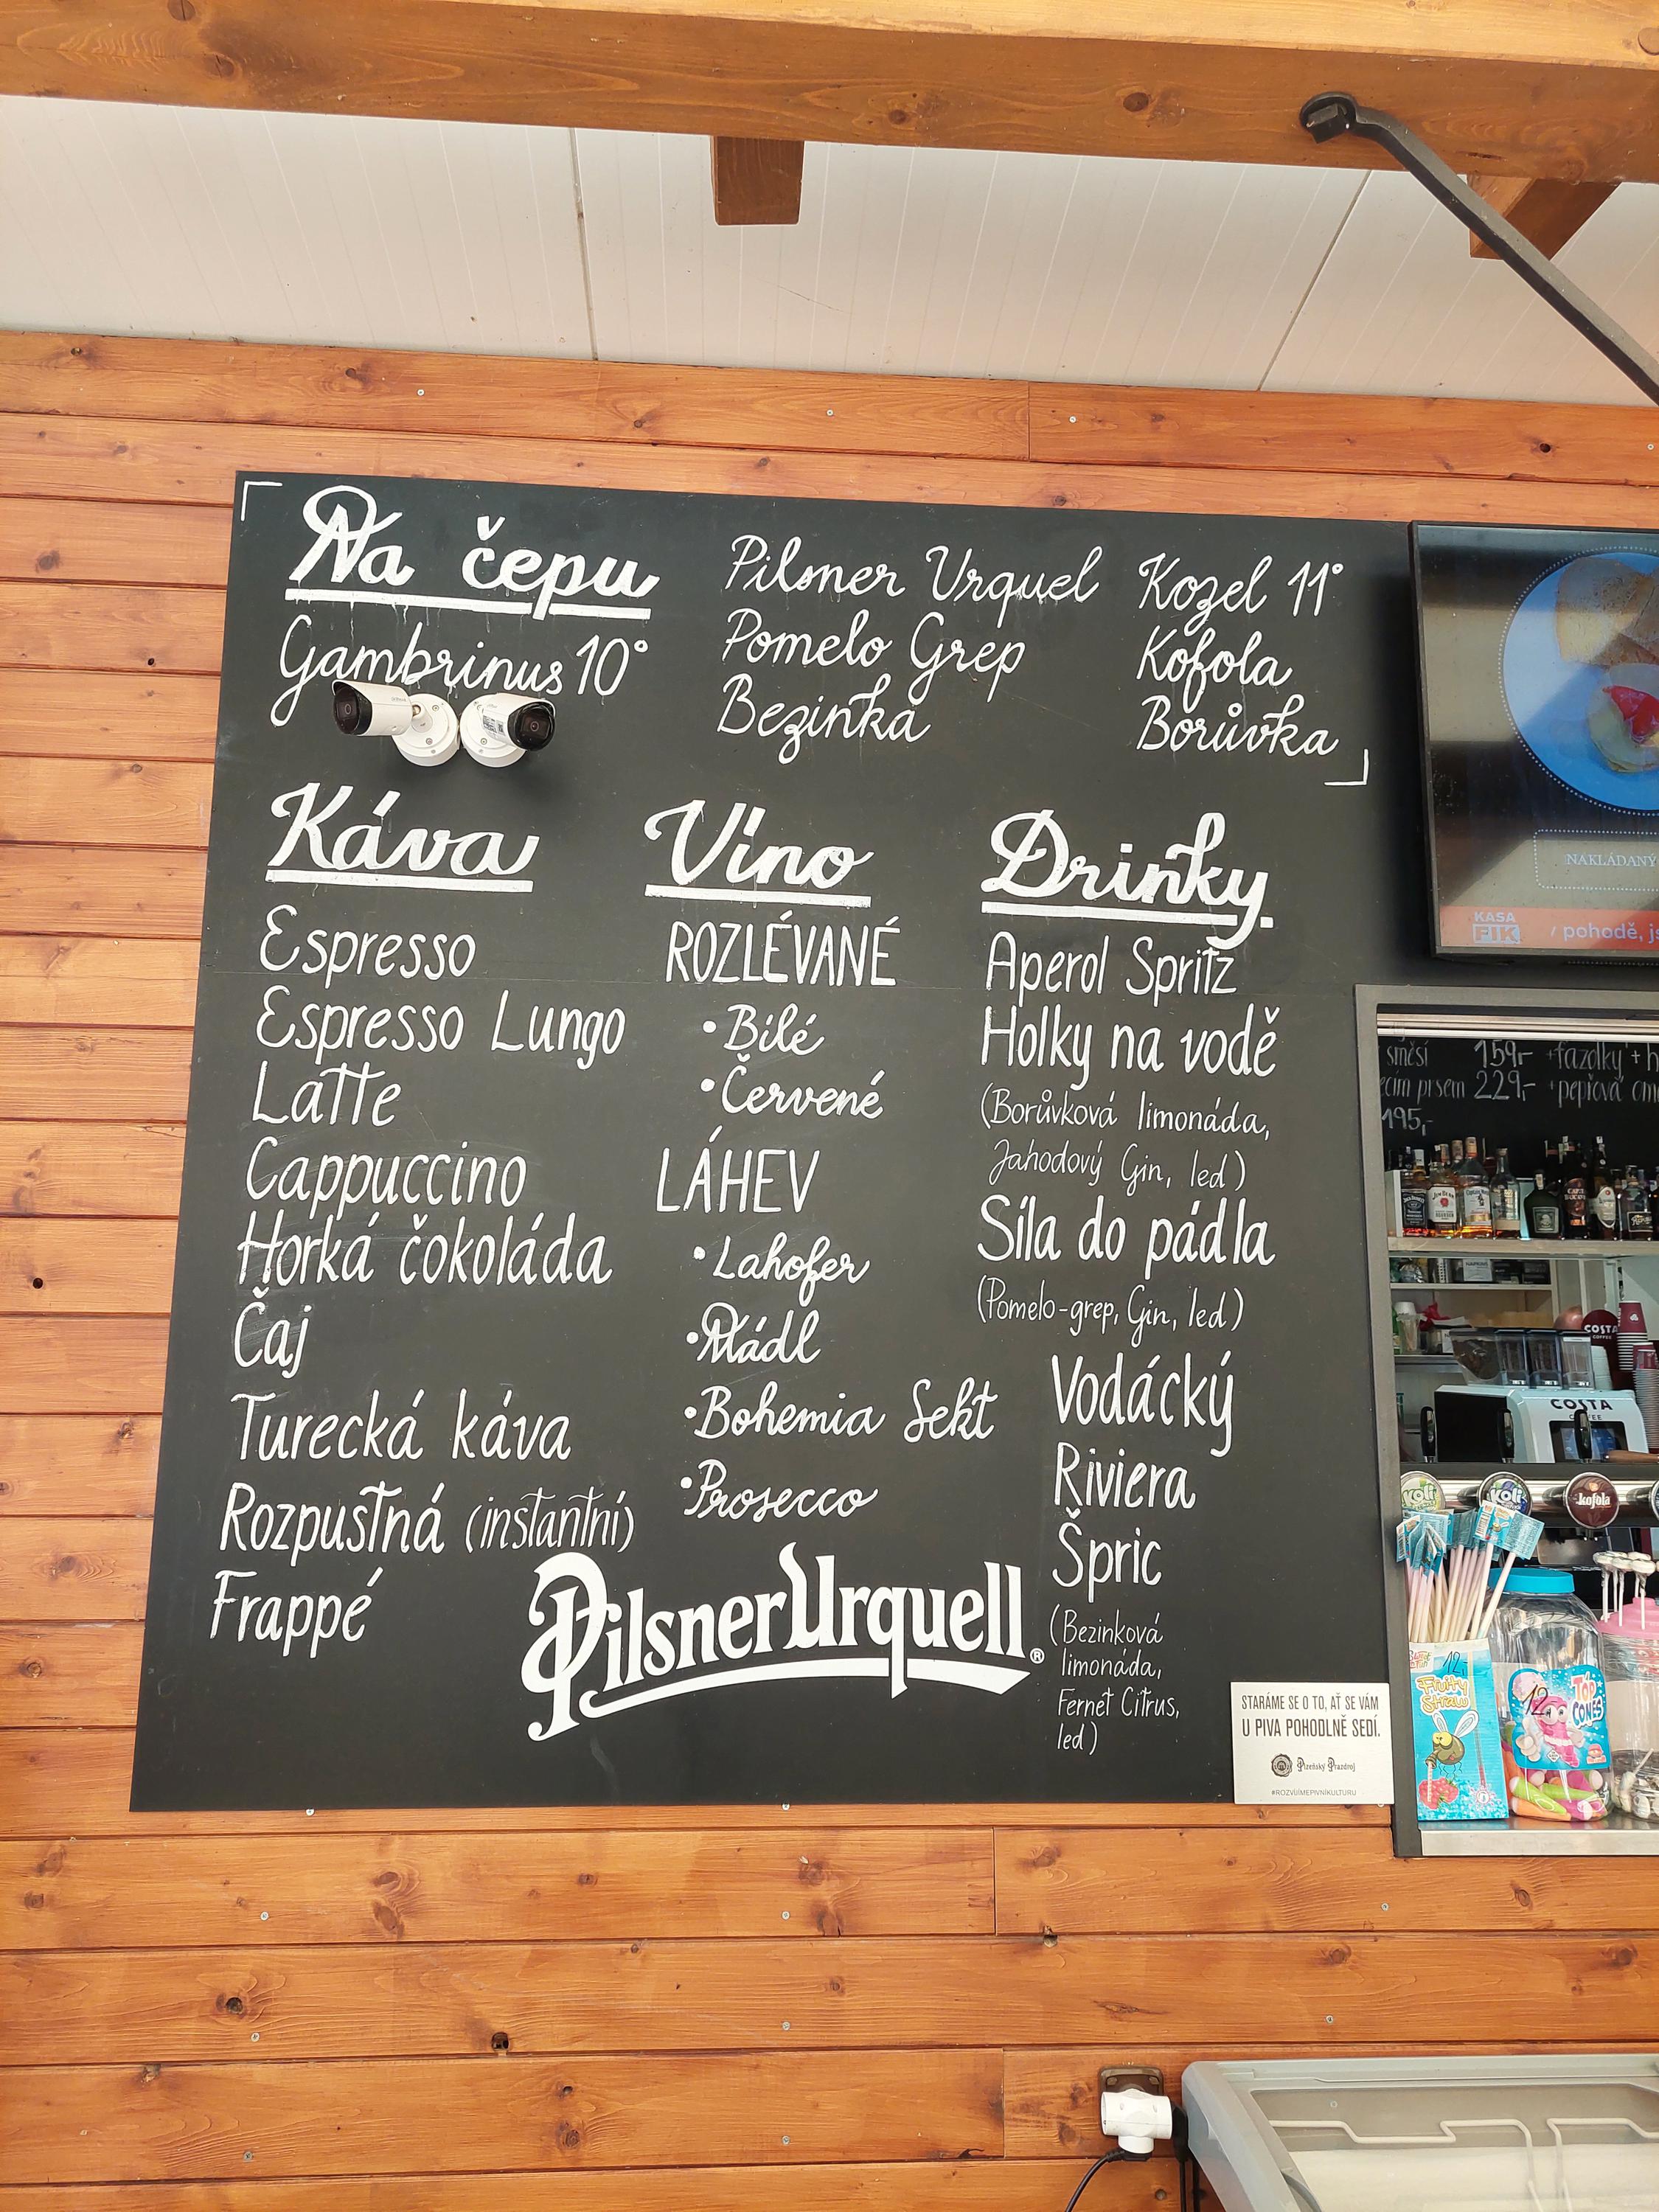 Na čepu
Gambrinus 10°
Pilsner Urquel
Pomelo Grep
Bezinka
Kozel 11°
Kofola
Borůvka
Káva
Espresso
Espresso Lungo
Latte
Cappuccino
Horká čokoláda
Čaj
Turecká káva
Rozpustná (instantní)
Frappé
Víno
ROZLÉVANÉ
•Bílé
•Červené
LÁHEV
•Lahofer
•Mádl
•Bohemia Sekt
•Prosecco
Drinky.
Aperol Spritz
Holky na vodě
(Borůvková limonáda,
Jahodový Gin, led)
Síla do pádla
(Pomelo-grep, Gin, led)
Vodácký
Riviera
Špric
(Bezinková
limonáda,
Fernet Citrus,
led)
Pilsner Urquell®
STARÁME SE O TO, AŤ SE VÁM
U PIVA POHODLNĚ SEDÍ.
Plzeňský Prazdroj
#ROZVÍJÍMEPIVNÍKULTURU
NAKLÁDANÝ
KASA
FIK
pohodě, js
směsí 159,- +fazolky + h
prsem 229,- +pepřová om
195,-
COSTA
COFFEE
COSTA
koli
koli
kofola
12,-
Fruity
Straw
12
TOP
CONES